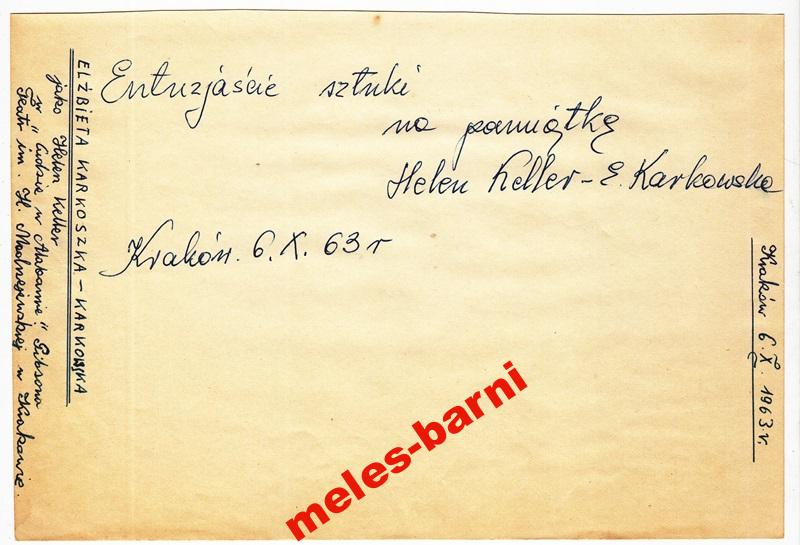 Entuzjaście sztuki
na pamiątkę
Helen Keller - E. Karkowska
Kraków. 6. X. 63 r
ELŻBIETA KARKOSZKA - KARKOWSKA
jako Helen Keller
w "Cudzie w Alabamie" Gibsona
Teatr im. H. Modrzejewskiej w Krakowie.
Kraków 6. X. 1963.r.
meles-barni